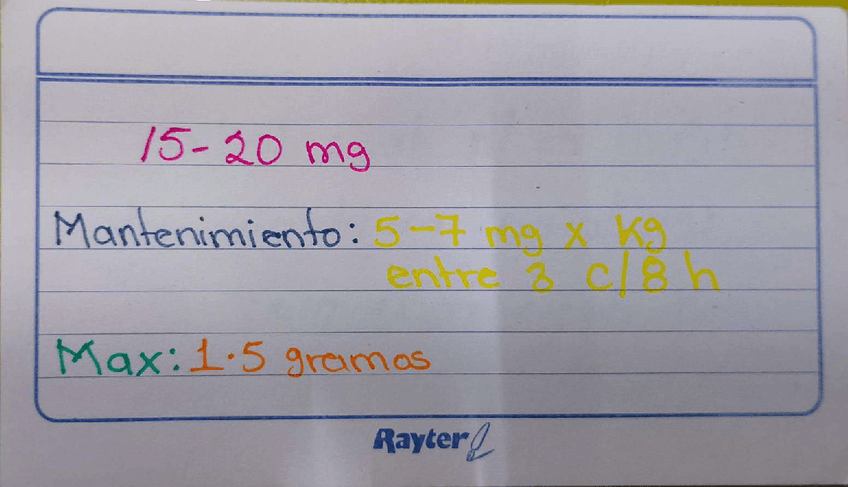 15-20 mg
Mantenimiento: 5-7 mg x Kg
entre 3 c/8 h
Max: 1.5 gramos
Rayter